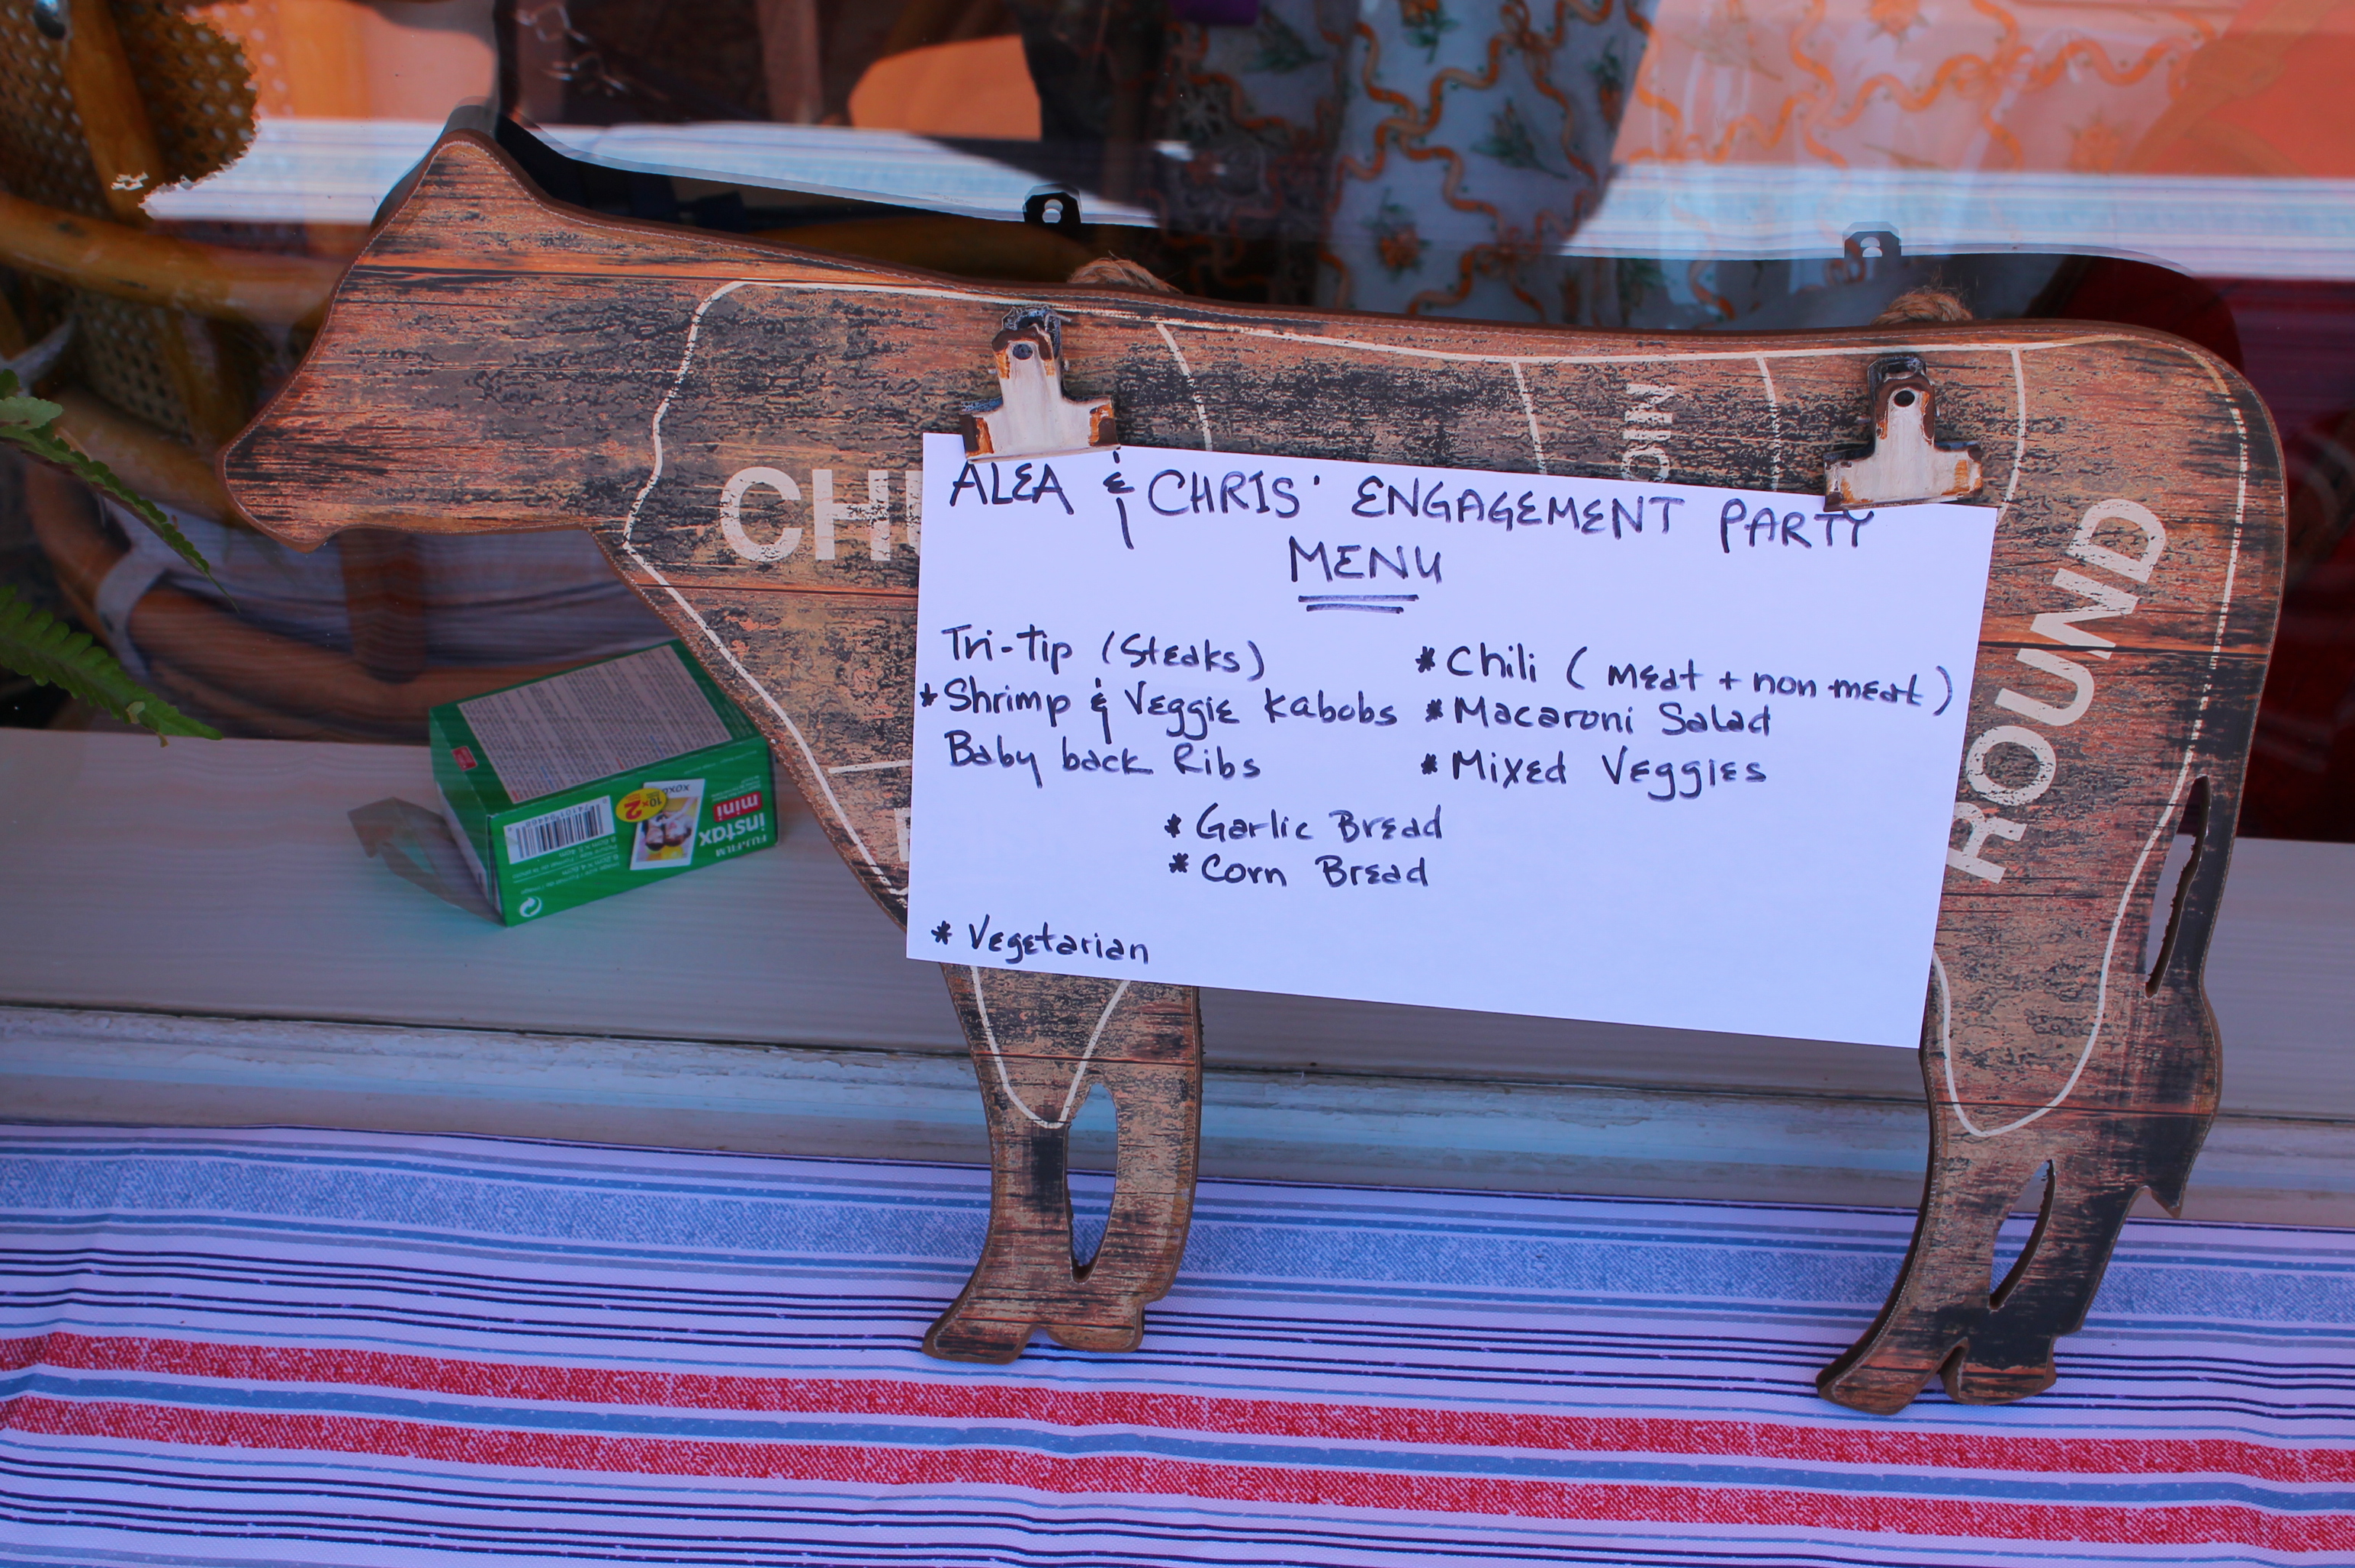 CHU
OIN
ROUND
ALEA & CHRIS' ENGAGEMENT PARTY
MENU
Tri-Tip (Steaks)
* Shrimp & Veggie Kabobs
Baby back Ribs
* Chili ( meat + non meat )
* Macaroni Salad
* Mixed Veggies
* Garlic Bread
* Corn Bread
* Vegetarian
FUJIFILM
instax
mini
10x2